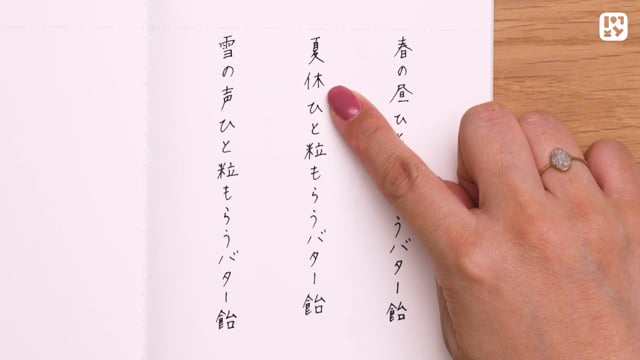 春の昼ひ うバター飴
夏休ひと粒もらうバター飴
雪の声ひと粒もらうバター飴